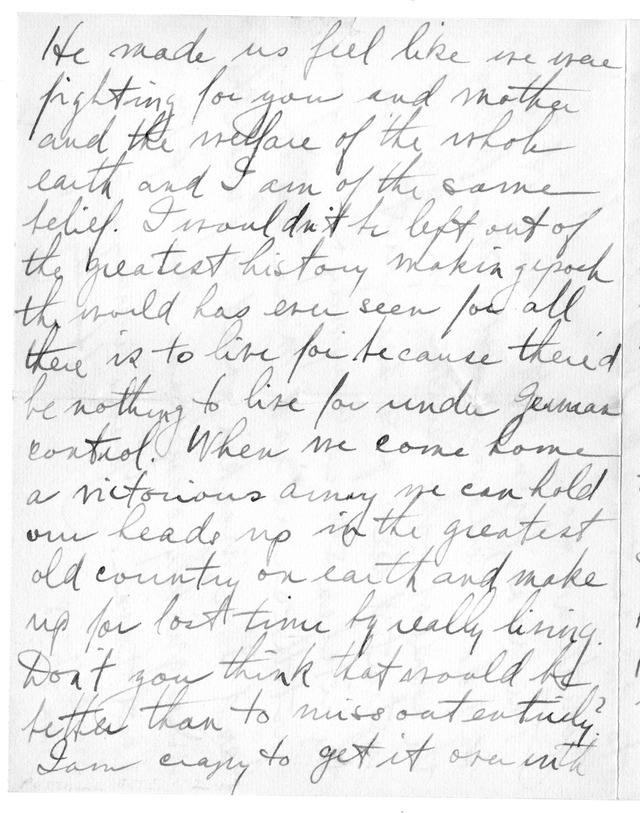 He made us feel like we were
fighting for you and mother
and the welfare of the whole
earth and I am of the same
belief. I wouldn't be left out of
the greatest history making epoch
the world has ever seen for all
there is to live for because there'd
be nothing to live for under German
control. When we come home
a victorious army we can hold
our heads up in the greatest
old country on earth and make
up for lost time by really living.
Don't you think that would be
better than to miss out entirely?
I am crazy to get it over with